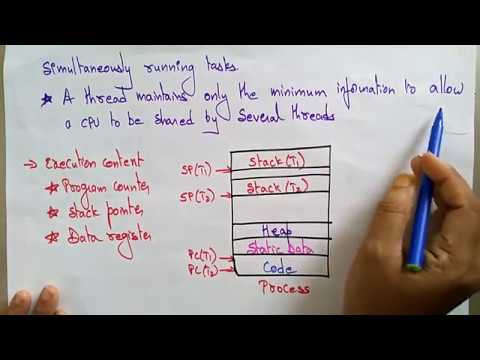 Simultaneously running tasks.
★ A thread maintains only the minimum information to allow
a CPU to be shared by several threads
→ Execution content
★ Program counter
★ Stack pointer
★ Data register
SP(T1) → Stack (T1)
SP(T2) → Stack (T2)
Heap
Static Data
PC(T1) →
PC(T2) → Code
Process